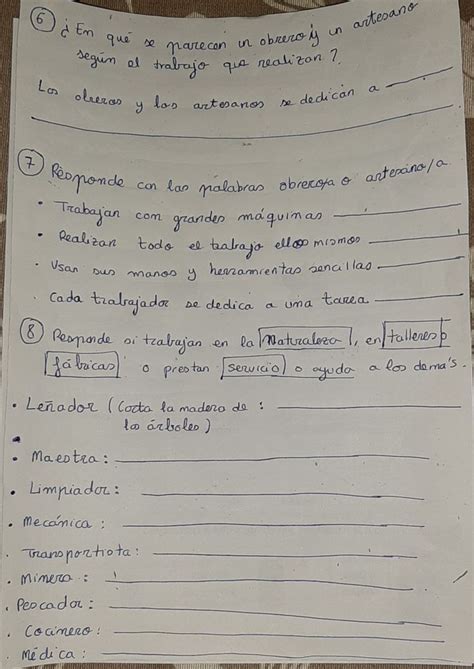 ⑥ ¿En qué se parecen un obrero y un artesano
según el trabajo que realizan?
Los obreros y los artesanos se dedican a
⑦ Responde con las palabras obrero/a o artesano/a
• Trabajan con grandes máquinas
• Realizan todo el trabajo ellos mismos
• Usan sus manos y herramientas sencillas
• Cada trabajador se dedica a una tarea
⑧ Responde si trabajan en la Naturaleza, en talleres o
fábricas o prestan servicio o ayuda a los demás.
• Leñador (Corta la madera de :
los árboles)
• Maestra:
• Limpiador:
• Mecánica :
• Transportista:
• Minera :
• Pescador:
• Cocinero:
• Médica: